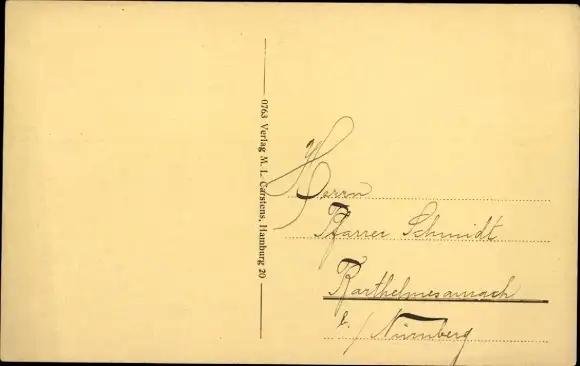 0763 Verlag M. L. Carstens, Hamburg 20
Herrn
Pfarrer Schmidt
Barthelmesaurach
b./Nürnberg